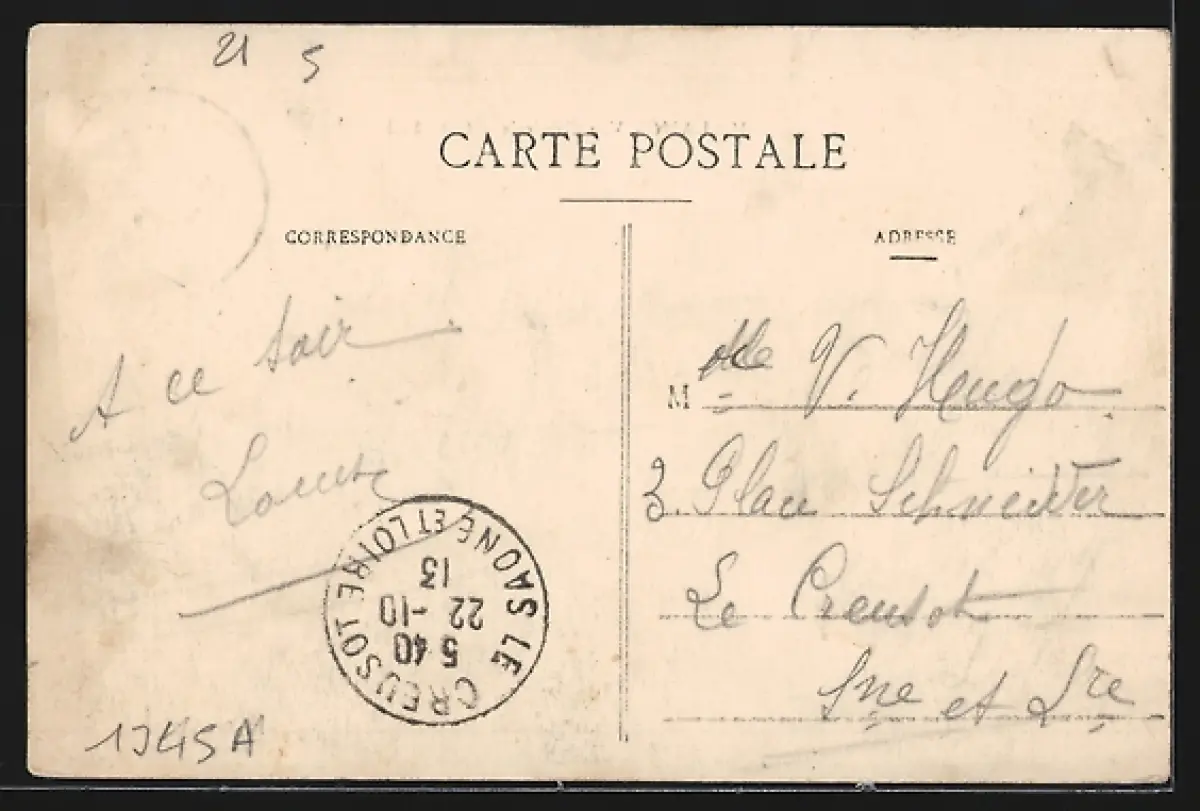 21 5
CARTE POSTALE
CORRESPONDANCE
ADRESSE
A ce soir
Louise
Mlle V. Heugo
3. Place Schneider
Le Creusot
Sne et Lre
LE CREUSOT SAONE ET LOIRE
5 40
22 -10
13
1345A